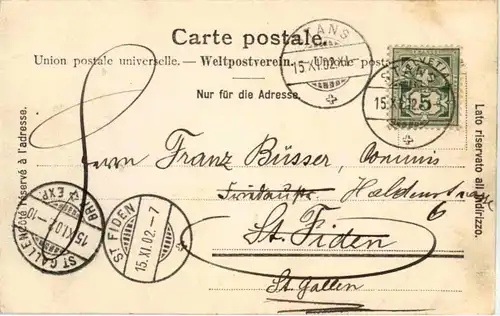 Carte postale.
Union postale universelle. — Weltpostverein. — Unione postale
Nur für die Adresse.
Côté réservé à l'adresse.
Lato riservato all'indirizzo.
HELVETIA
5
STANS
15.XI.02.
STANS
15.XI.02.
Herrn Franz Büsser, Commis
Haldenstrasse 6
St. Fiden
St. Gallen
ST. FIDEN
15.XI.02.-7
ST. GALLEN
15.XI.02.-10
BRF. EXP.